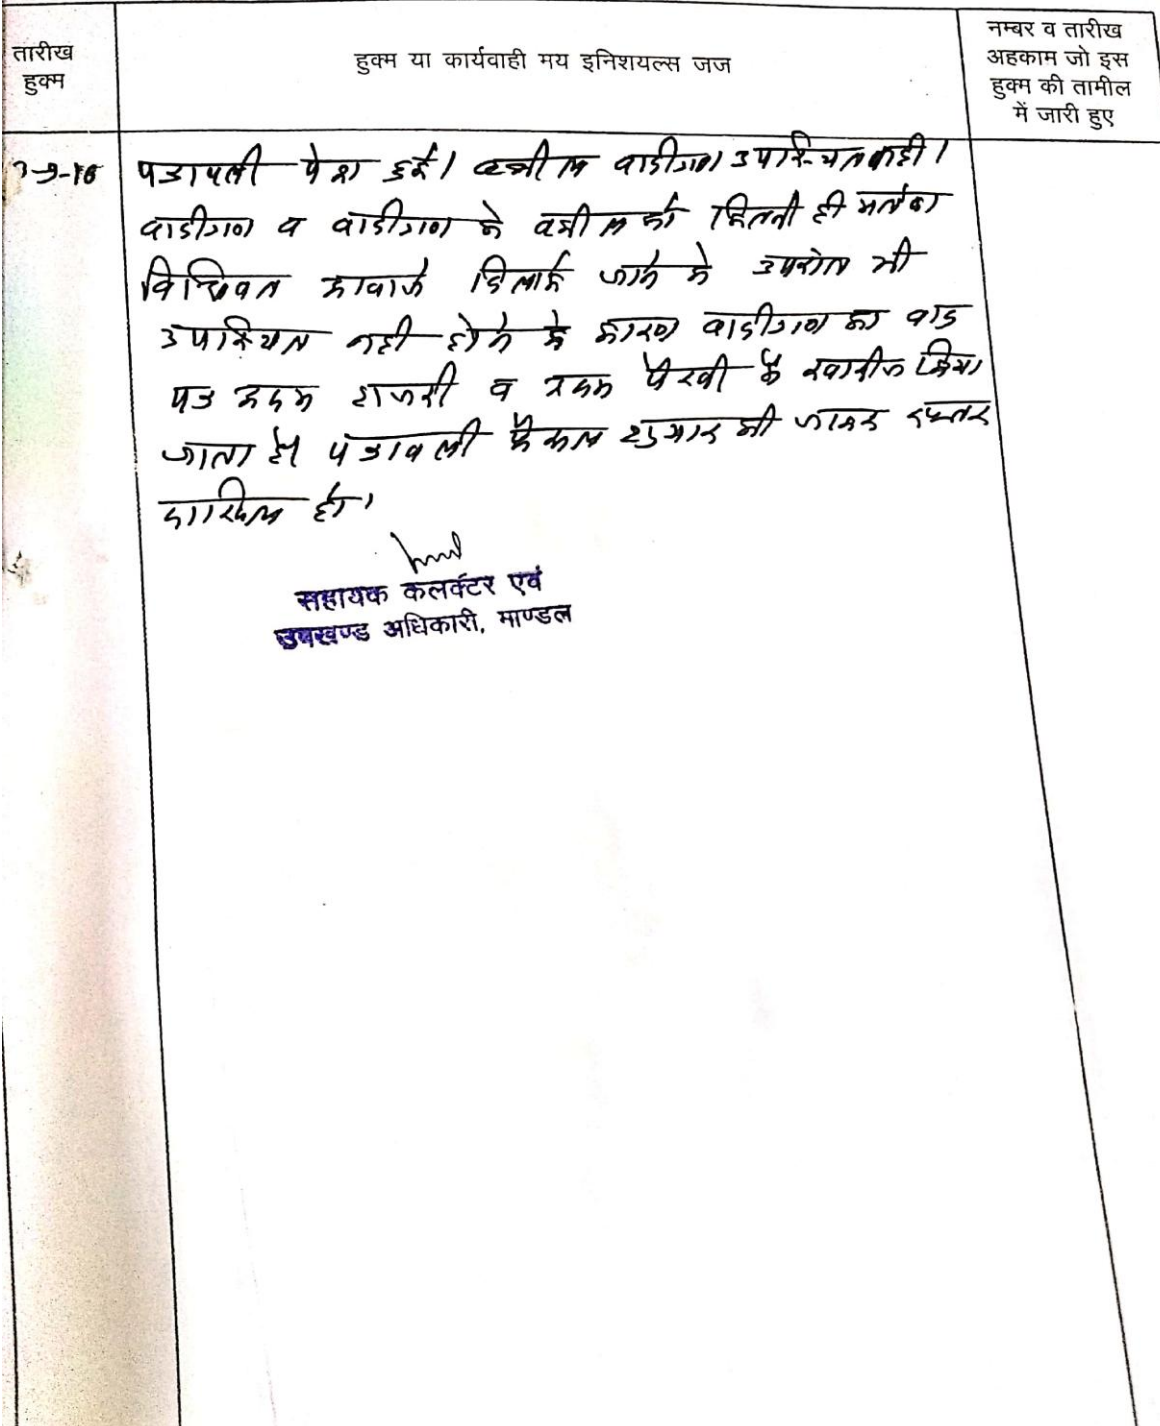 तारीख
हुक्म
हुक्म या कार्यवाही मय इनिशयल्स जज
नम्बर व तारीख
अहकाम जो इस
हुक्म की तामील
में जारी हुए
पत्रावली पेश हुई। वकील वादीगण उपस्थित नही।
वादीगण व वादीगण के वकील को कितनी ही मर्तबा
विधिवत आवाजे दिलाई जाने के उपरांत भी
उपस्थित नही होने के कारण वादीगण का वाद
पत्र अदम हाजरी व अदम पैरवी के खारीज किया
जाता है। पत्रावली फैसल शुमार की जाकर दफ्तर
दाखिल हो।
सहायक कलक्टर एवं
उपखण्ड अधिकारी, माण्डल